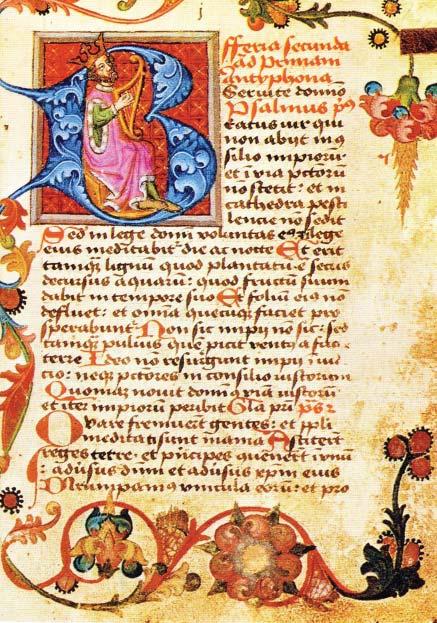 fferia secunda
ad primam
antyphona
Seruite domino
Psalmus p9
B
eatus uir qui
non abijt in 9
silio impioru
et i via pctoru
no stetit : et in
cathedra pesti
lencie no sedit
Sed in lege domi voluntas e9 : i lege
eius meditabit die ac nocte Et erit
tamq lignum quod plantatu e secus
decursus aquaru : quod fructu suum
dabit in tempore suo Et folium ei9 no
defluet : et omia quecuq faciet pro
sperabunt Non sic impij no sic : sed
tamq puluis que picit vent9 a facie
terre Ideo no resurgunt impij i iudi
cio : neq pctores in consilio iustorum
Quoniam nouit domin9 via iustoru
et iter impioru peribit Gla pri ps9
Quare fremuerut gentes : et ppli
meditati sunt inania Astiterut
reges terre : et principes quenerut i vnu
: aduersus dnm et aduersus xpm eius
Dirumpam9 vincula eoru : et pro